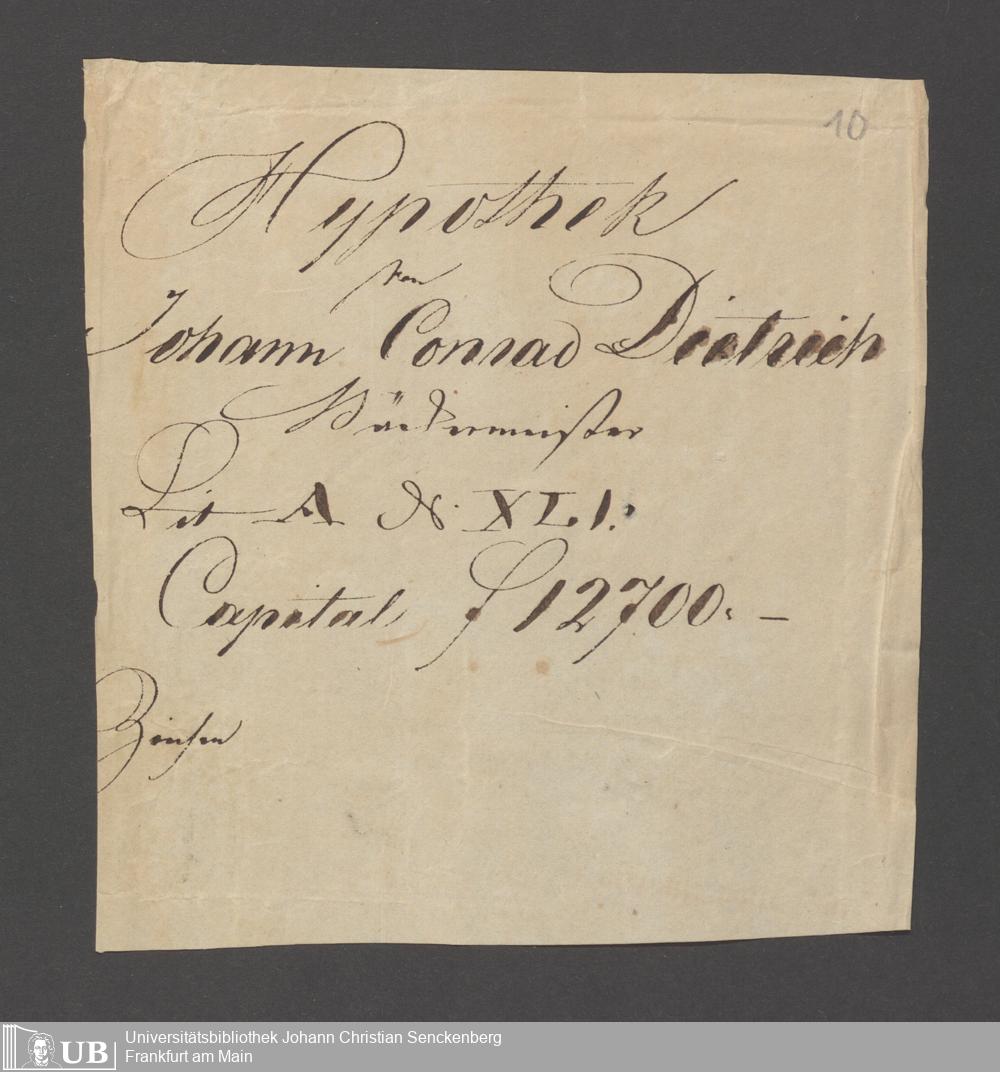 10
Hypothek
von
Johann Conrad Dietrich
Bäckermeister
Lit A N. XLI.
Capital f 12700. —
Zinsen
UB
Universitätsbibliothek Johann Christian Senckenberg
Frankfurt am Main